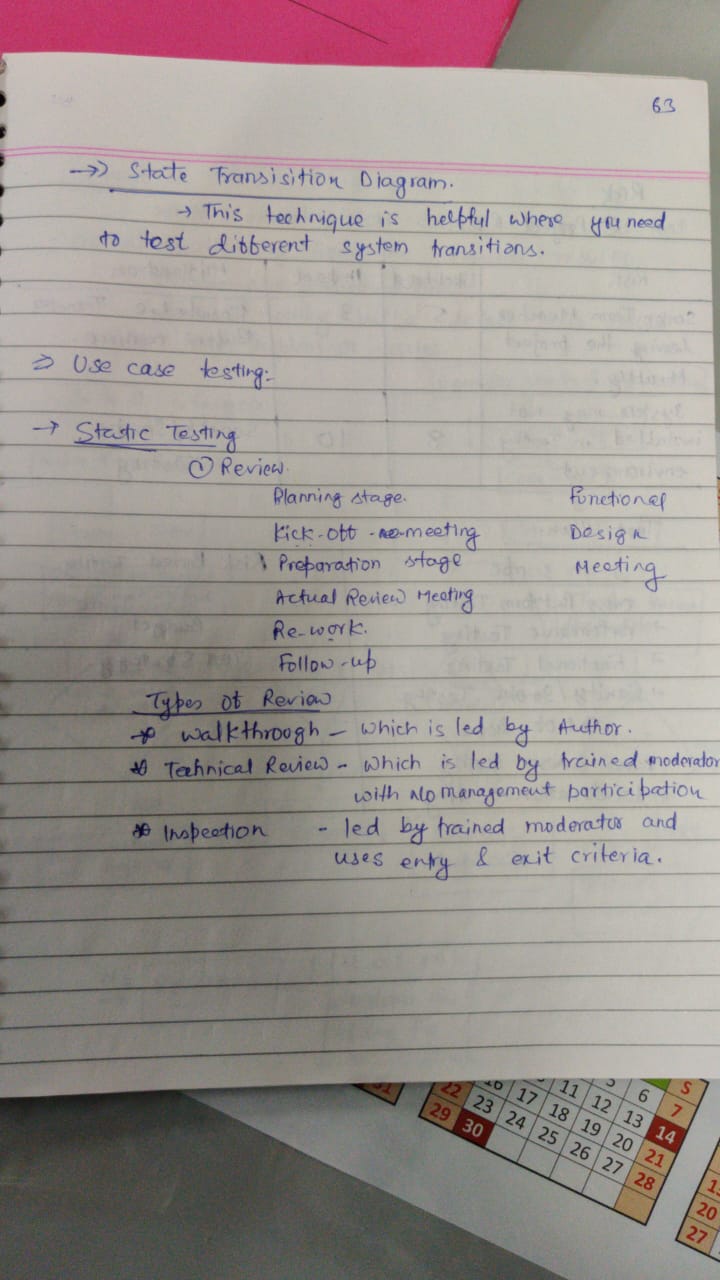 63
->> State Transisition Diagram.
→ This technique is helpful where you need
to test different system transitions.
⇒ Use case testing:-
→ Static Testing
① Review.
Planning stage. Functional
Kick-off - meeting Design
Preparation stage Meeting
Actual Review Meeting
Re-work.
Follow-up
Types of Review
* Walkthrough - which is led by Author.
* Technical Review - which is led by trained moderator
with No management participation
* Inspection - led by trained moderator and
uses entry & exit criteria.
5 6 S
16 11 12 13 7
22 17 18 19 20 14
29 23 24 25 26 27 21
30 28
31
20
27